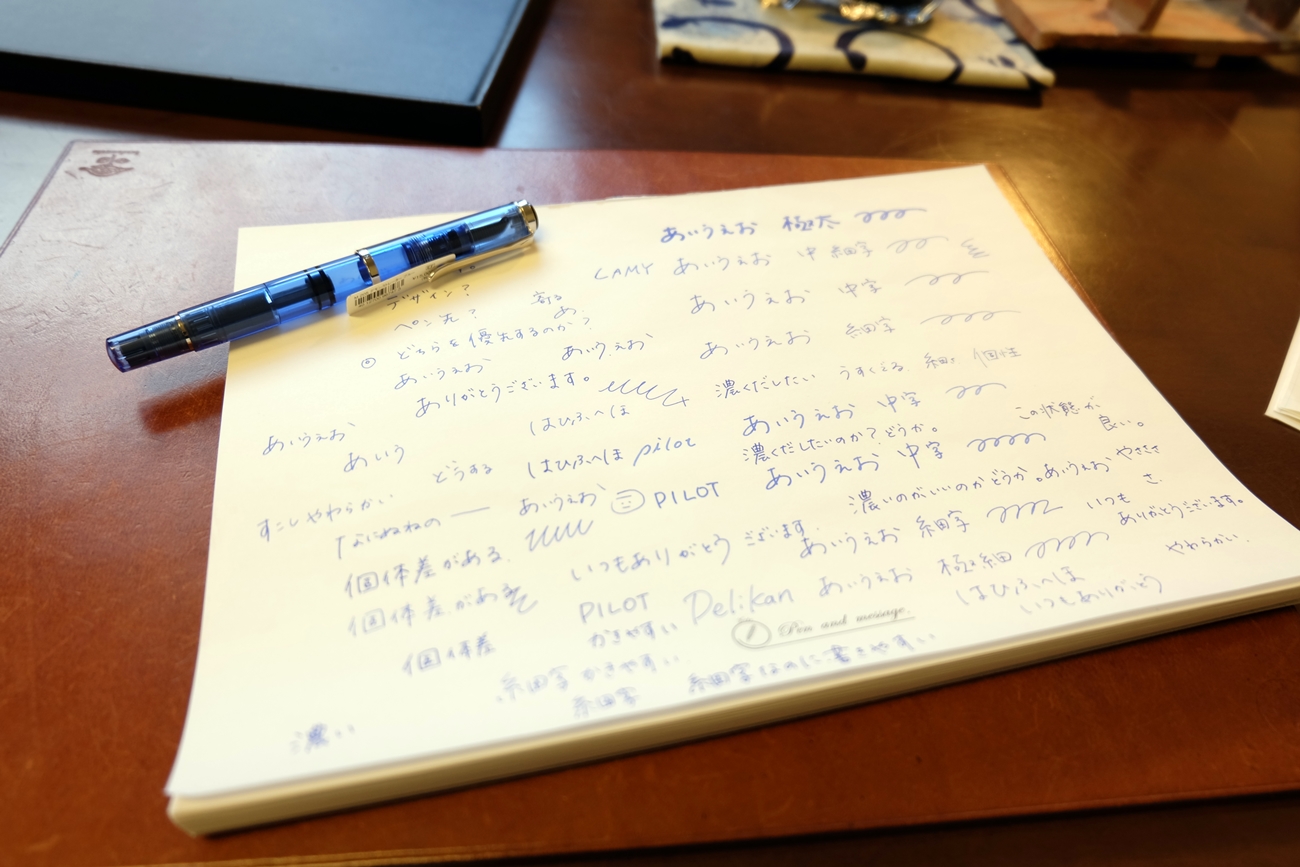 あいうえお 極太
LAMY あいうえお 中細字
デザイン?
ペン先?
あいうえお 中字
どちらを優先するのか?
あいうえお あいうえお
あいうえお 細字
ありがとうございます。
濃くだしたい うすくえる 細 個性
はひふへほ
あいうえお
あいう
どうする はひふへほ pilot
あいうえお 中字
濃くだしたいのか?どうか。
この状態が
良い。
すこしやわらかい
なにぬねの あいうえお PILOT
あいうえお 中字
濃いのがいいのかどうか。あいうえお
個体差がある。
いつもありがとう ございます。
あいうえお 細字 いつも
ありがとうございます。
やわらかい。
個体差がある
PILOT Pelikan あいうえお 極細
はひふへほ
いつもありがとう
Pen and message.
個体差
かきやすい
細字 かきやすい
細字 細字なのに書きやすい
濃い